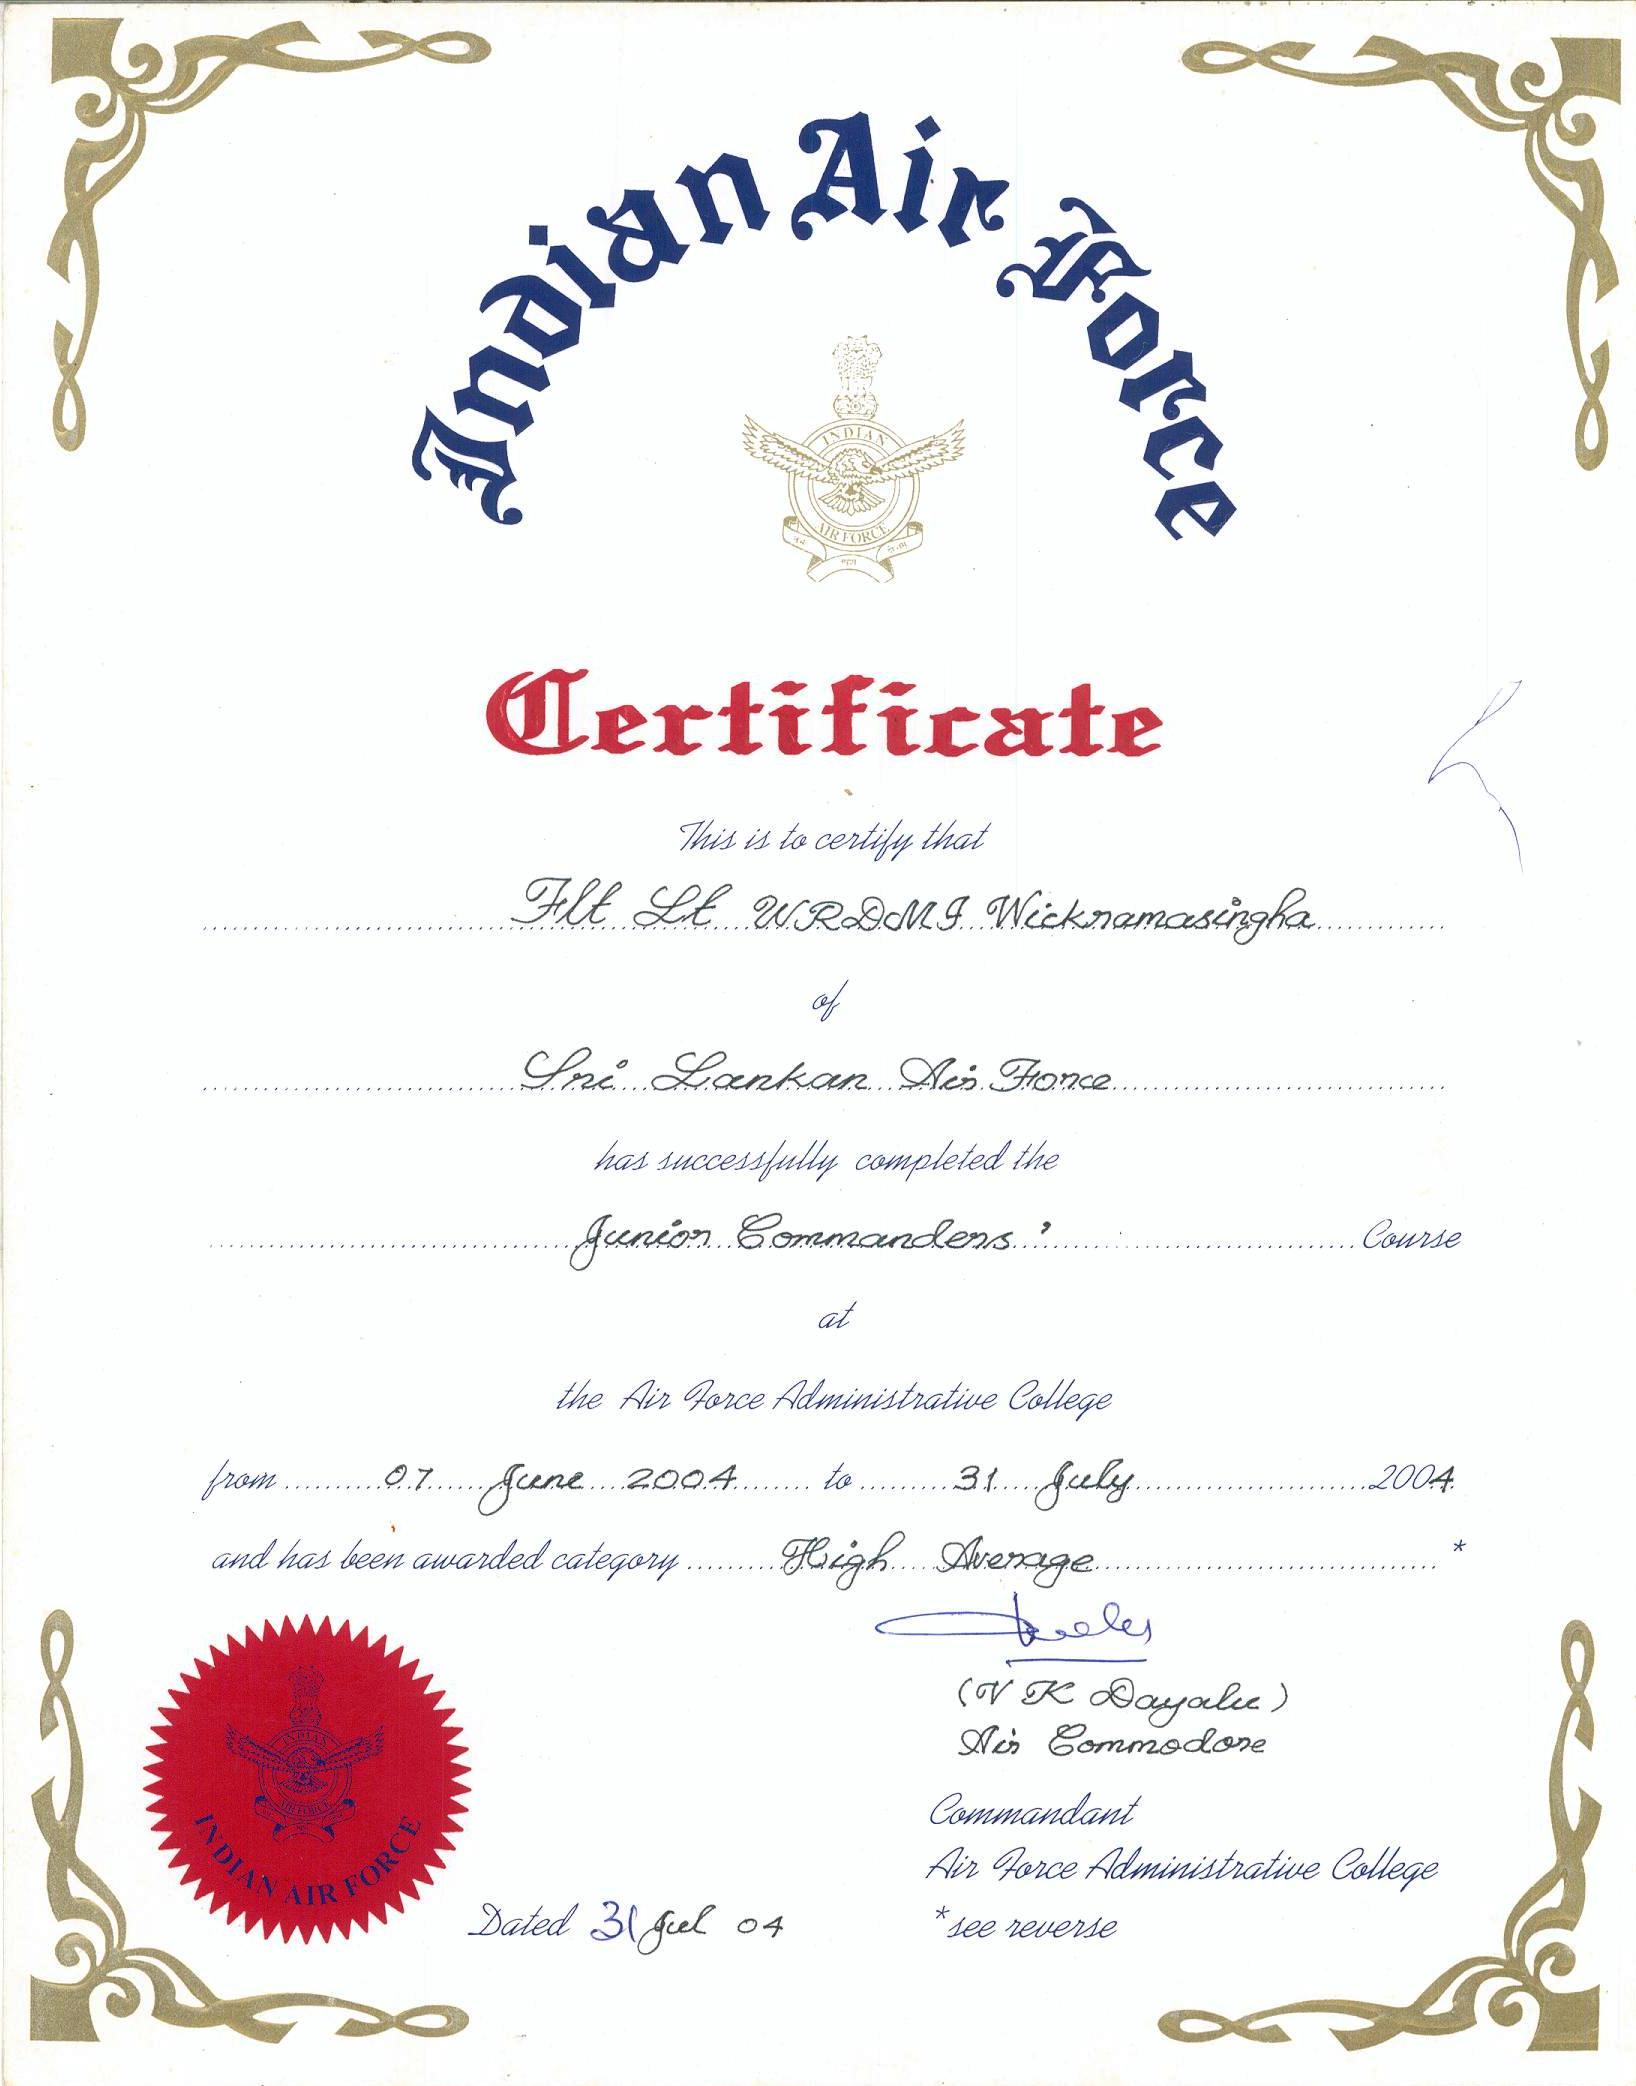 Indian Air Force
INDIAN
AIR FORCE
Certificate
This is to certify that
Flt Lt WRDMI Wickramasingha
of
Sri Lankan Air Force
has successfully completed the
Junior Commanders' Course
at
the Air Force Administrative College
from 07 June 2004 to 31 July 2004
and has been awarded category High Average *
(V K Dayalu)
Air Commodore
Commandant
Air Force Administrative College
*see reverse
INDIAN
AIR FORCE
INDIAN AIR FORCE
Dated 31 Jul 04